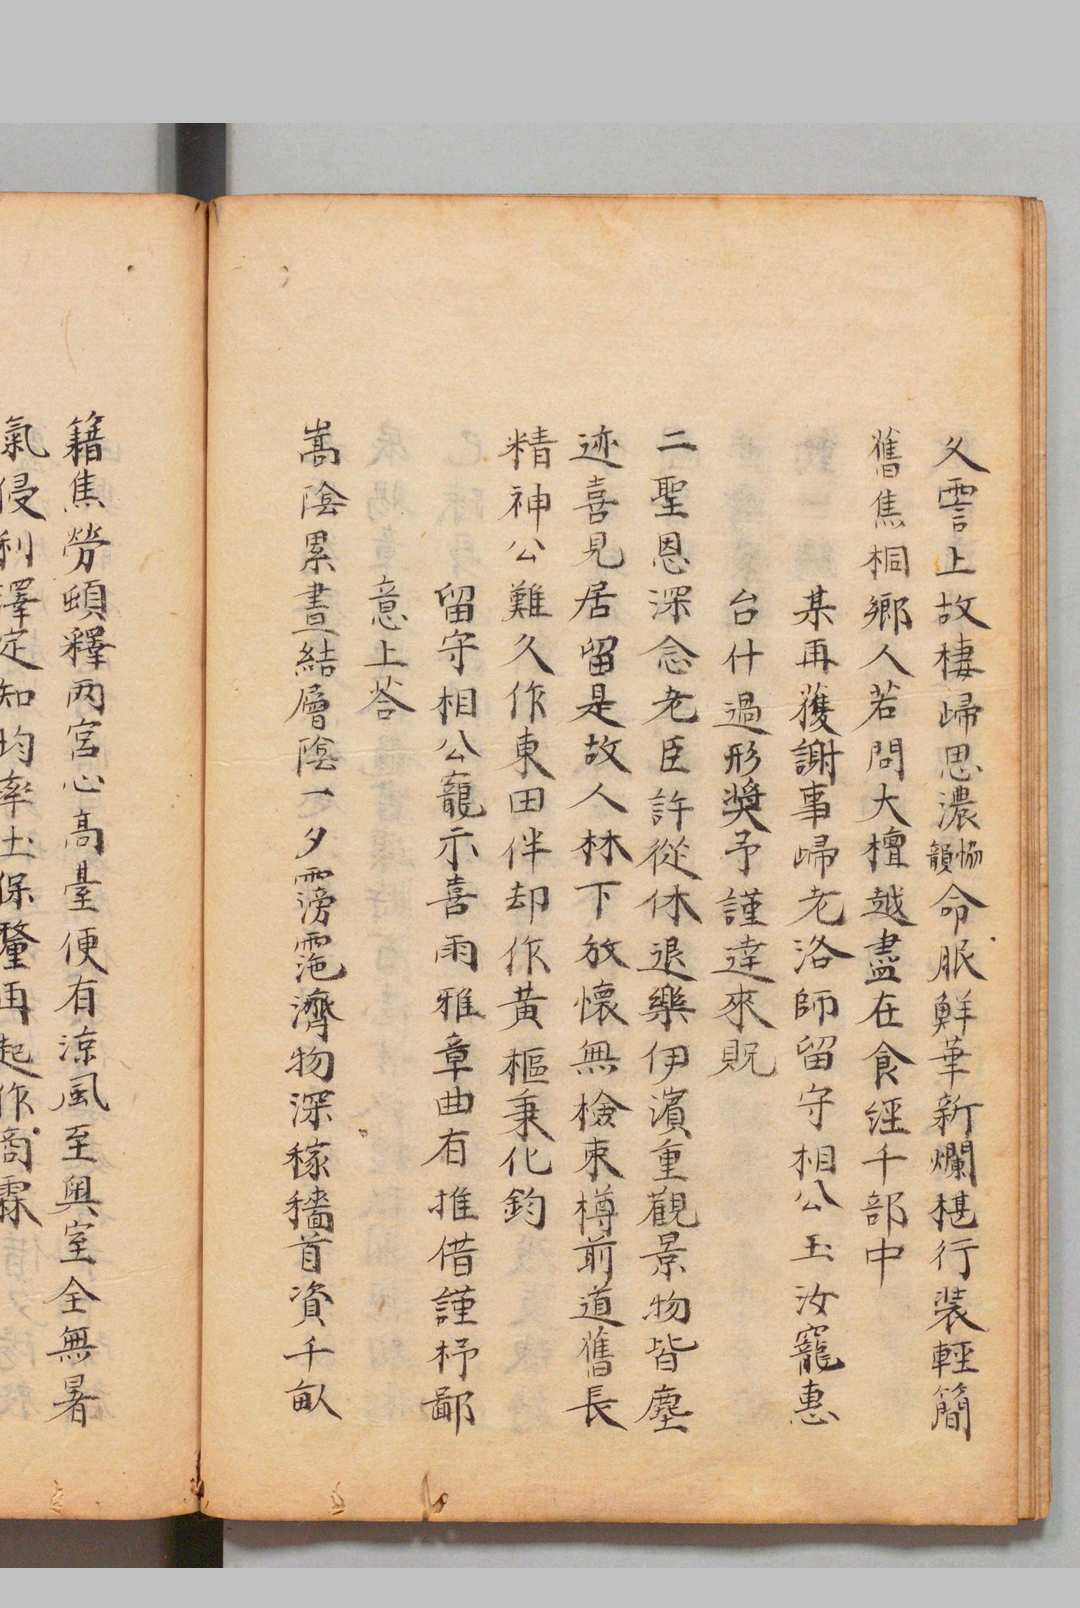 久霅上故棲歸思濃協韻命服鮮華新爛椹行裝輕簡
舊焦桐鄉人若問大檀越盡在食經千部中
某再獲謝事歸老洛師留守相公玉汝寵惠
台什過形奬予謹達來貺
二聖恩深念老臣許從休退樂伊濱重觀景物皆塵
迹喜見居留是故人林下放懷無檢束樽前道舊長
精神公難久作東田伴却作黃樞秉化鈞
留守相公寵示喜雨雅章曲有推借謹抒鄙
意上荅
嵩陰累晝結層陰一夕霶霈濟物深稼穡首資千畝
籍焦勞頓釋两宮心高臺便有涼風至奥室全無暑
氣侵利澤定知均率土保釐再起作商霖